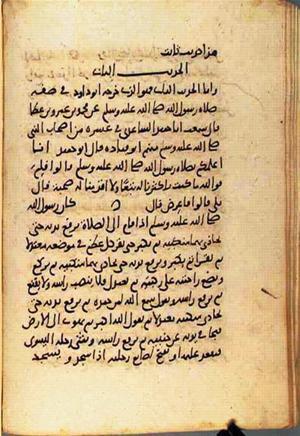 هذا حديث ثابت
الحديث الثالث
واما الحديث الثالث فهو الذي خرجه ابو داود في صفة
صلاة رسول الله صلى الله عليه وسلم عن محمد بن عمرو بن عطا
قال سمعت ابا حميد الساعدي في عشرة من اصحاب النبي
صلى الله عليه وسلم منهم ابو قتادة قال ابو حميد انا
اعلمكم بصلاة رسول الله صلى الله عليه وسلم قالوا فلم
فوالله ما كنت باكثرنا له تبعا ولا اقدمنا له صحبة قال
بلى قالوا فاعرض قال كان رسول الله
صلى الله عليه وسلم اذا قام الى الصلاة يرفع يديه حتى
يحاذي بهما منكبيه ثم يكبر حتى يقر كل عظم في موضعه معتدلا
ثم يقرا ثم يكبر ويرفع يديه حتى يحاذي بهما منكبيه ثم يركع
ويضع راحتيه على ركبتيه ثم يعتدل فلا ينصب راسه ولا يقنع
ثم يرفع راسه ويقول سمع الله لمن حمده ثم يرفع يديه حتى
يحاذي منكبيه معتدلا ثم يقول الله اكبر ثم يهوي الى الارض
فيجافي يديه عن جنبيه ثم يرفع راسه ويثني رجله اليسرى
فيقعد عليها ويفتح اصابع رجليه اذا سجد ويسجد